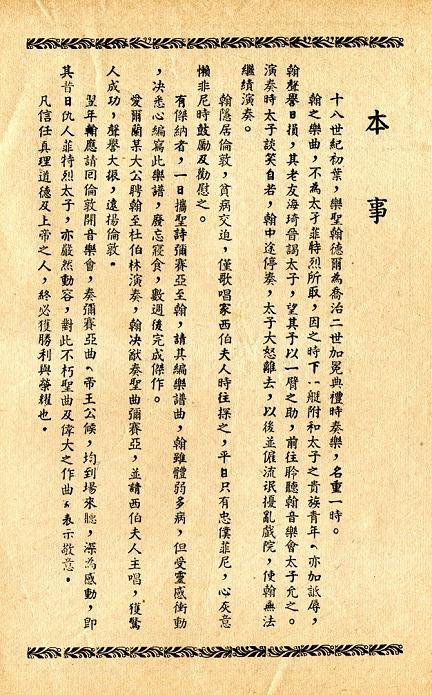 本事
十八世紀初葉，樂聖翰德爾為喬治二世加冕典禮時奏樂，名重一時。
翰之樂曲，不為太子菲特烈所取，因之時下一般附和太子之貴族青年，亦加詆辱，
翰聲譽日損，其老友海琦晉謁太子，望其予以一臂之助，前往聆聽翰音樂會太子允之。
演奏時太子談笑自若，翰中途停奏，太子大怒離去，以後並僱流氓擾亂戲院，使翰無法
繼續演奏。
翰隱居倫敦，貧病交迫，僅歌唱家西伯夫人時往探之，平日只有忠僕菲尼，心灰意
懶非尼時鼓勵及勸慰之。
有傑納者，一日攜聖詩彌賽亞至翰，請其編樂譜曲，翰雖體弱多病，但受靈感衝動
，决悉心編寫此樂譜，廢忘寢食，數週後完成傑作。
愛爾蘭某大公聘翰至杜伯林演奏，翰决猷奏聖曲彌賽亞，並請西伯夫人主唱，獲驚
人成功，聲譽大振，遠揚倫敦。
翌年翰應請回倫敦開音樂會，奏彌賽亞曲，帝王公候，均到場來聽，深為感動，即
其昔日仇人菲特烈太子，亦嚴然動容，對此不朽聖曲及偉大之作曲，表示敬意。
凡信任真理道德及上帝之人，終必獲勝利與榮耀也。